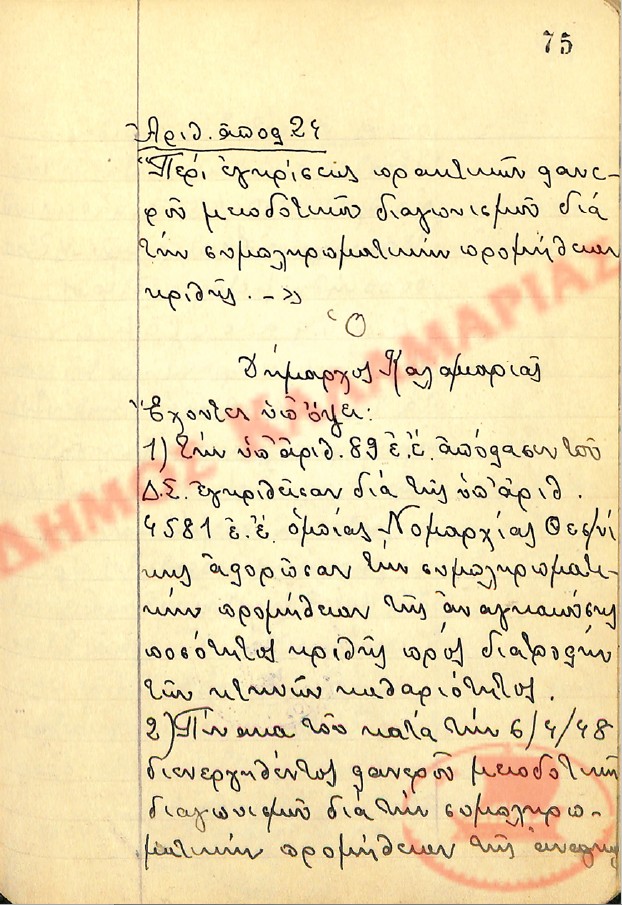 75
Ἀριθ. ἀποφ 24
"Περί ἐγκρίσεως πρακτικοῦ φανε-
ροῦ μειοδοτικοῦ διαγωνισμοῦ διά
τήν συμπληρωματικήν προμήθειαν
κριθῆς. -»
Ὁ
Δήμαρχος Καλαμαριᾶς
Ἔχοντες ὑπ' ὄψει:
1) τήν ὑπ' ἀριθ. 89 ἐ.ἔ. ἀπόφασιν τοῦ
Δ.Σ. ἐγκριθεῖσαν διά τῆς ὑπ' ἀριθ.
4581 ἐ.ἔ. ὁμοίας Νομαρχίας Θεσ/νί
κης ἀφορῶσαν τήν συμπληρωματι-
κήν προμήθειαν τῆς ἀναγκαιούσης
ποσότητος κριθῆς πρός διατροφήν
τῶν κτηνῶν καθαριότητος.
2) Πίνακα τοῦ κατά τήν 6/4/48
διενεργηθέντος φανεροῦ μειοδοτικοῦ
διαγωνισμοῦ διά τήν συμπληρω-
ματικήν προμήθειαν τῆς
ΔΗΜΟΣ ΚΑΛΑΜΑΡΙΑΣ